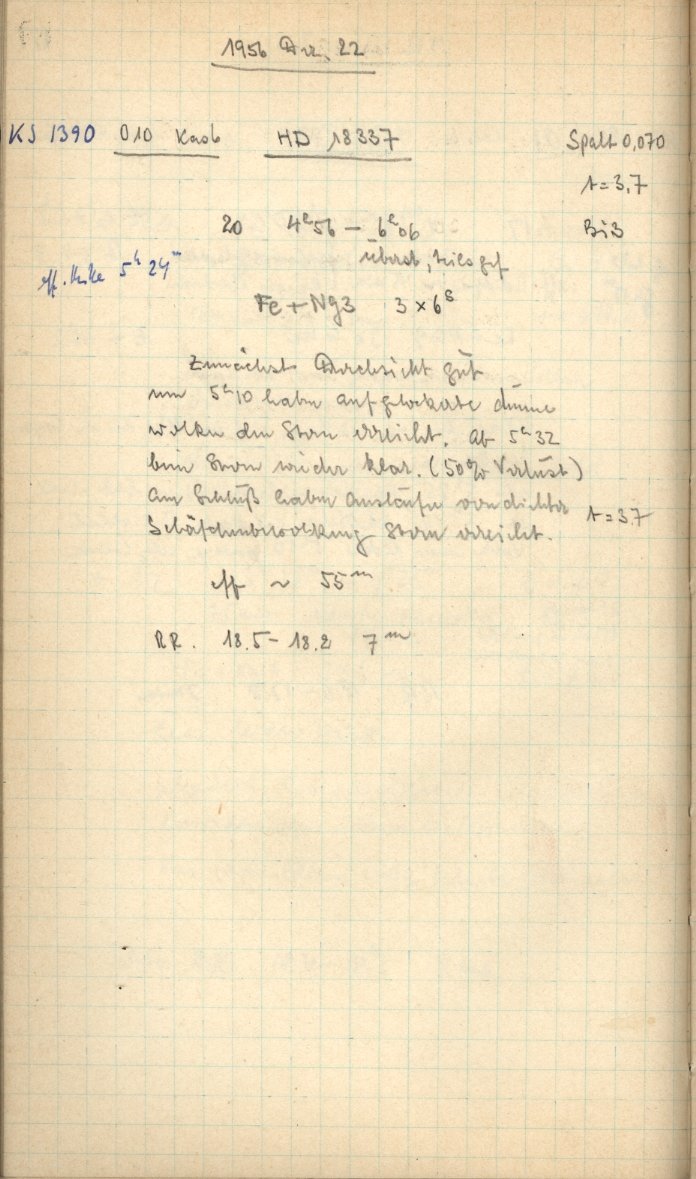 1956 Dez. 22
KS 1390 010 Kasb HD 18337 Spalt 0,070
t=3,7
20 4h56 – 6h06 BiB
übersb, teils gef
eff. Mitte 5h 24m
Fe + Ng3 3 × 6s
Zunächst Durchsicht gut
um 5h10 haben aufgelockerte dünne
Wolken den Stern erreicht. Ab 5h32
beim Stern wieder klar. (50% Verlust)
Am Schluß haben Ausläufer von dichter t=3.7
Schäfchenbewölkung Stern erreicht.
eff ~ 55m
RR. 18.5 – 18.2 7m